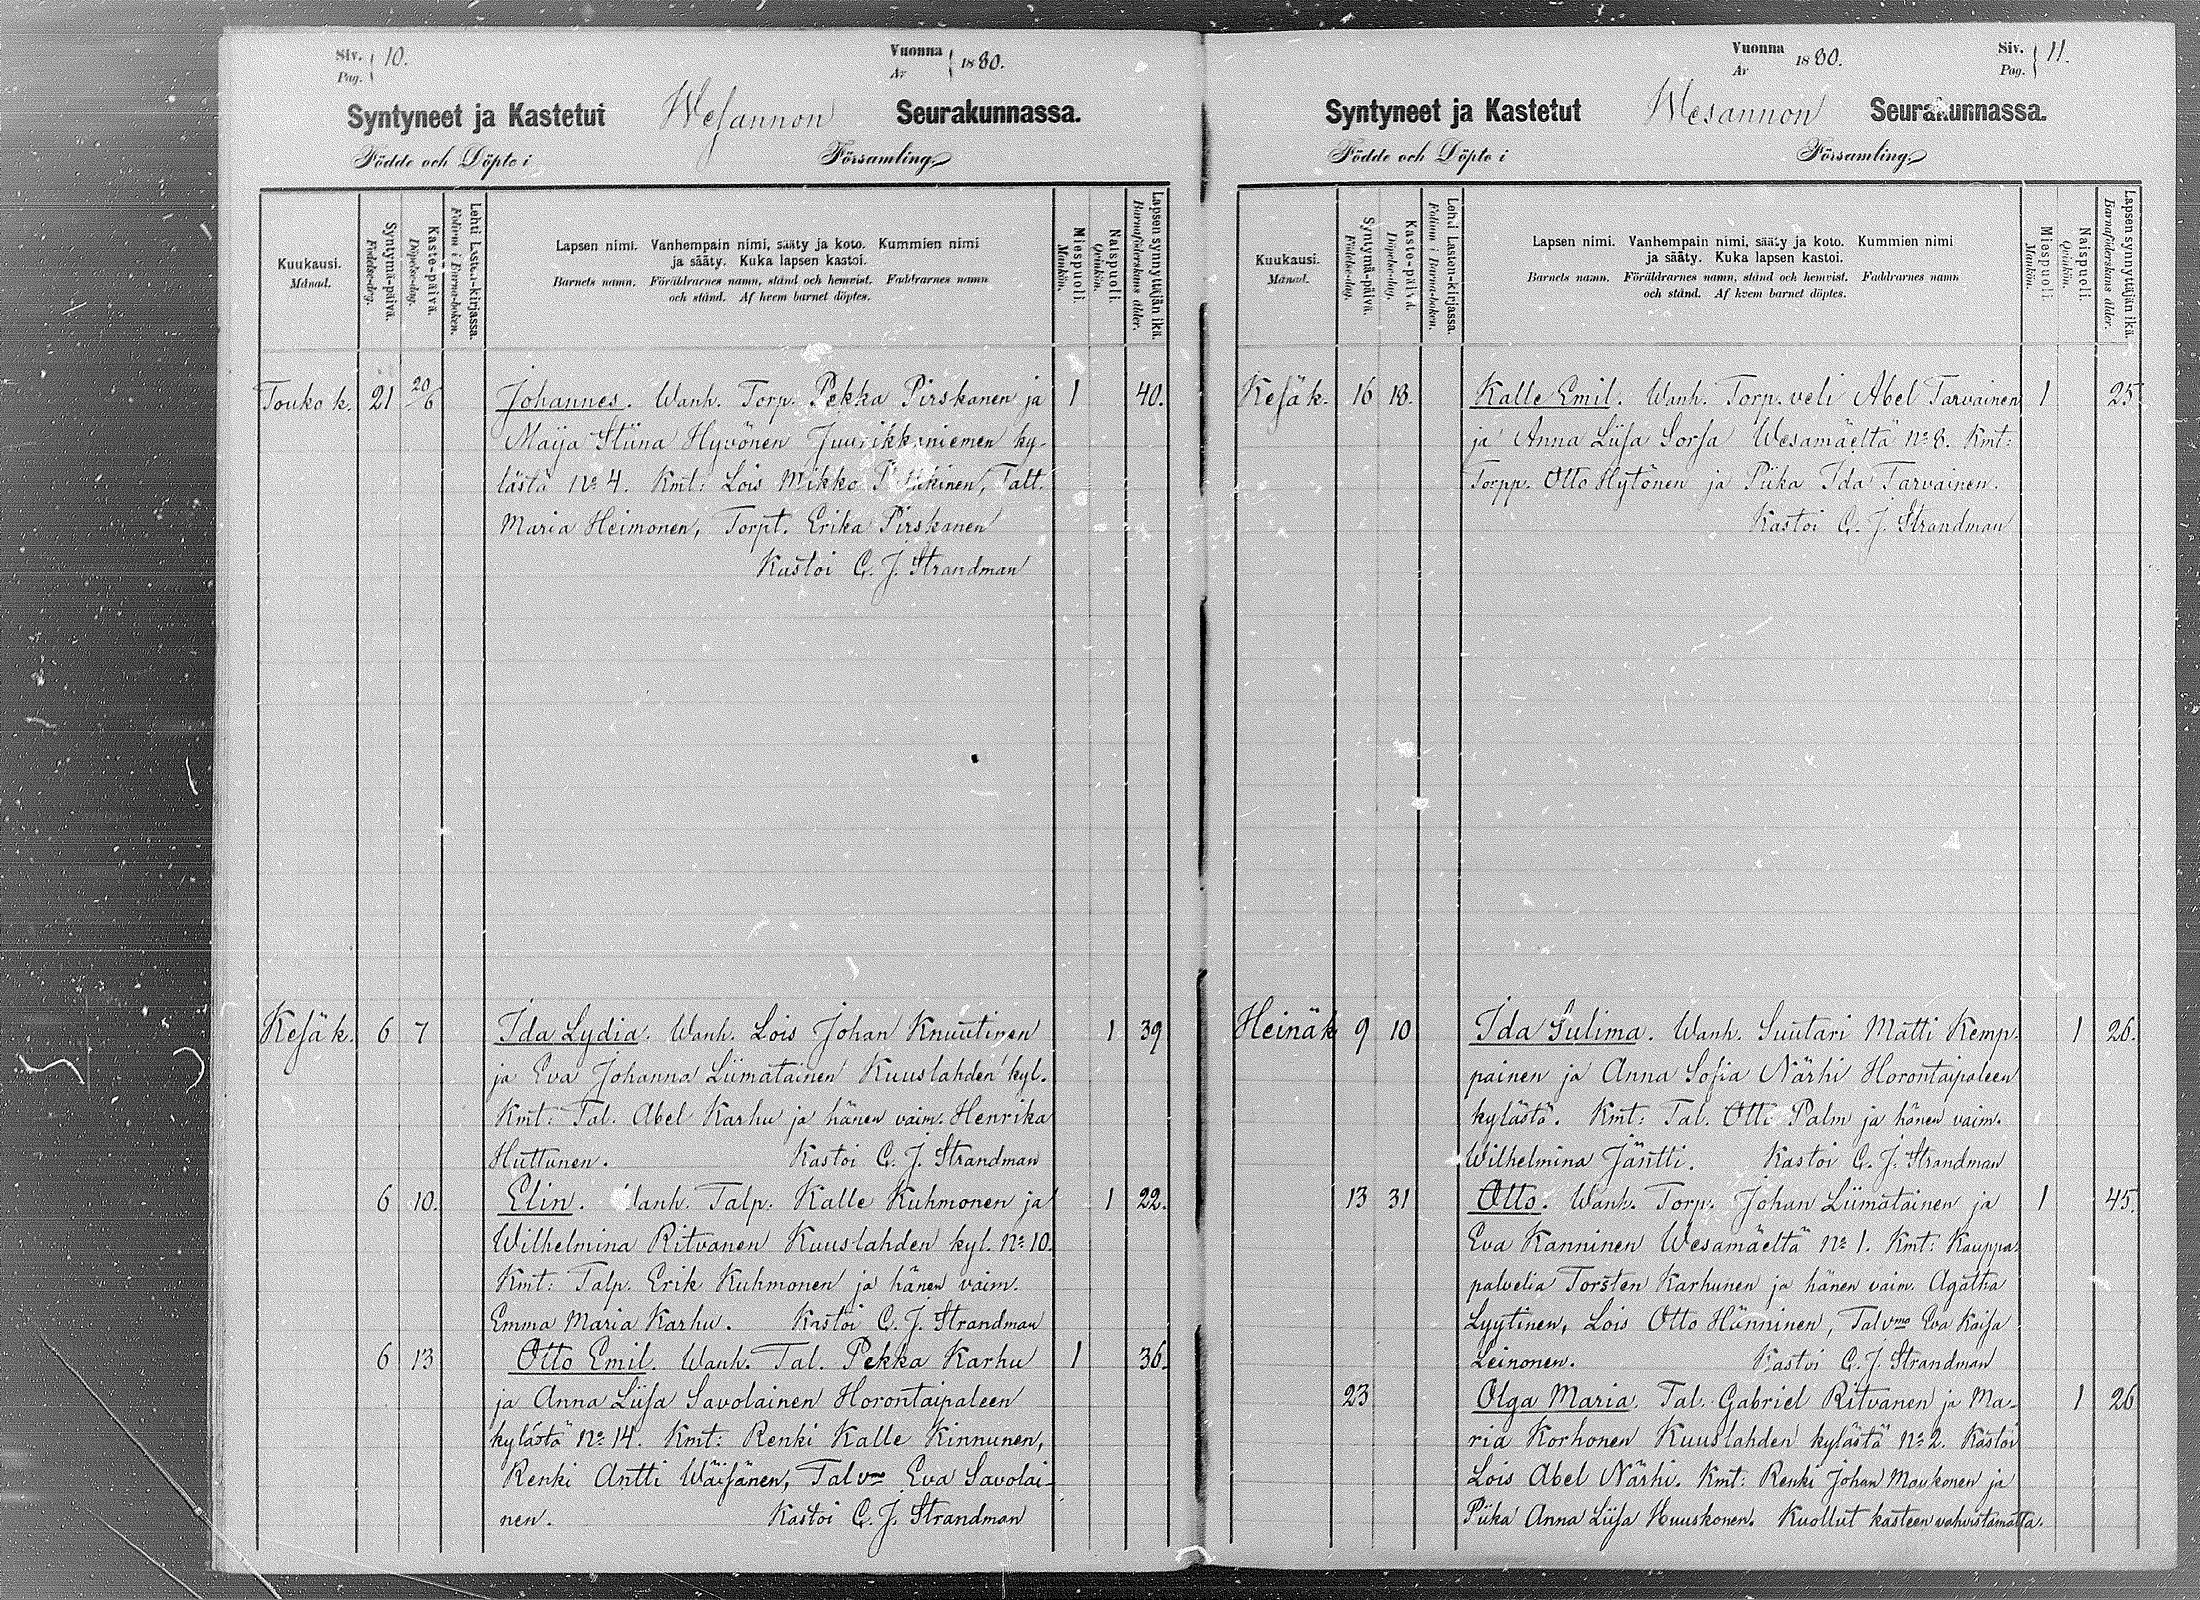 Siv. 10.
Pag.
Vuonna 1880.
År
Syntyneet ja Kastetut Wesannon Seurakunnassa.
Födde och Döpte i Församling.
Kuukausi.
Månad.
Syntymä-päivä.
Födelse-dag.
Kaste-päivä.
Döpelse-dag.
Lehti Lasten-kirjassa.
Folium i Barna-boken.
Lapsen nimi. Vanhempain nimi, sääty ja koto. Kummien nimi
ja sääty. Kuka lapsen kastoi.
Barnets namn. Föräldrarnes namn, stånd och hemvist. Faddrarnes namn
och stånd. Af hvem barnet döptes.
Miespuoli.
Mankön.
Naispuoli.
Qvinkön.
Lapsen synnyttäjän ikä.
Barnaföderskans ålder.
Touko k. 21 20/6 Johannes. Wanh. Torp. Pekka Pirskanen ja 1 40.
Maija Stiina Hyvönen Juurikkaniemen ky-
lästä No 4. Kmt: Lois Mikko Talt.
Maria Heimonen, Torpt. Erika Pirskanen
Kastoi C. J. Strandman
Kesäk. 6 7 Ida Lydia. Wanh. Lois Johan Knuutinen 1 39
ja Eva Johanna Liimatainen Kuuslahden kyl.
Kmt: Tal. Abel Karhu ja hänen vaim. Henrika
Huttunen. Kastoi C. J. Strandman
6 10. Elin. Wanh. Talp. Kalle Kuhmonen ja 1 22.
Wilhelmina Ritvanen Kuuslahden kyl. No 10.
Kmt: Talp. Erik Kuhmonen ja hänen vaim.
Emma Maria Karhu. Kastoi C. J. Strandman
6 13 Otto Emil. Wanh. Tal. Pekka Karhu 1 36.
ja Anna Liisa Savolainen Horontaipaleen
kylästä No 14. Kmt: Renki Kalle Kinnunen,
Renki Antti Wäisänen, Talvmo Eva Savolai-
nen. Kastoi C. J. Strandman
Vuonna 1880.
År
Siv. 11.
Pag.
Syntyneet ja Kastetut Wesannon Seurakunnassa.
Födde och Döpte i Församling.
Kuukausi.
Månad.
Syntymä-päivä.
Födelse-dag.
Kaste-päivä.
Döpelse-dag.
Lehti Lasten-kirjassa.
Folium i Barna-boken.
Lapsen nimi. Vanhempain nimi, sääty ja koto. Kummien nimi
ja sääty. Kuka lapsen kastoi.
Barnets namn. Föräldrarnes namn, stånd och hemvist. Faddrarnes namn
och stånd. Af hvem barnet döptes.
Miespuoli.
Mankön.
Naispuoli.
Qvinkön.
Lapsen synnyttäjän ikä.
Barnaföderskans ålder.
Kesäk. 16 18. Kalle Emil. Wanh. Torp. veli Abel Tarvainen 1 25
ja Anna Liisa Sorsa Wesamäeltä No 8. Kmt:
Torpp. Otto Hytönen ja Piika Ida Tarvainen.
Kastoi C. J. Strandman
Heinäk 9 10 Ida Sulima. Wanh. Suutari Matti Kemp- 1 26.
painen ja Anna Sofia Närhi Horontaipaleen
kylästä. Kmt: Tal. Otto Palm ja hänen vaim.
Wilhelmina Jäntti. Kastoi C. J. Strandman
13 31 Otto. Wanh. Torp. Johan Liimatainen ja 1 45.
Eva Kanninen Wesamäeltä No 1. Kmt: Kauppa-
palvelia Torsten Karhunen ja hänen vaim. Agatha
Lyytinen, Lois Otto Hänninen, Talvmo Eva Kaisa
Leinonen. Kastoi C. J. Strandman
23 Olga Maria. Tal. Gabriel Ritvanen ja Ma- 1 26
ria Korhonen Kuuslahden kylästä No 2. Kastoi
Lois Abel Närhi. Kmt: Renki Johan Maukonen ja
Piika Anna Liisa Huuskonen. Kuollut kasteen vahvistamatta.